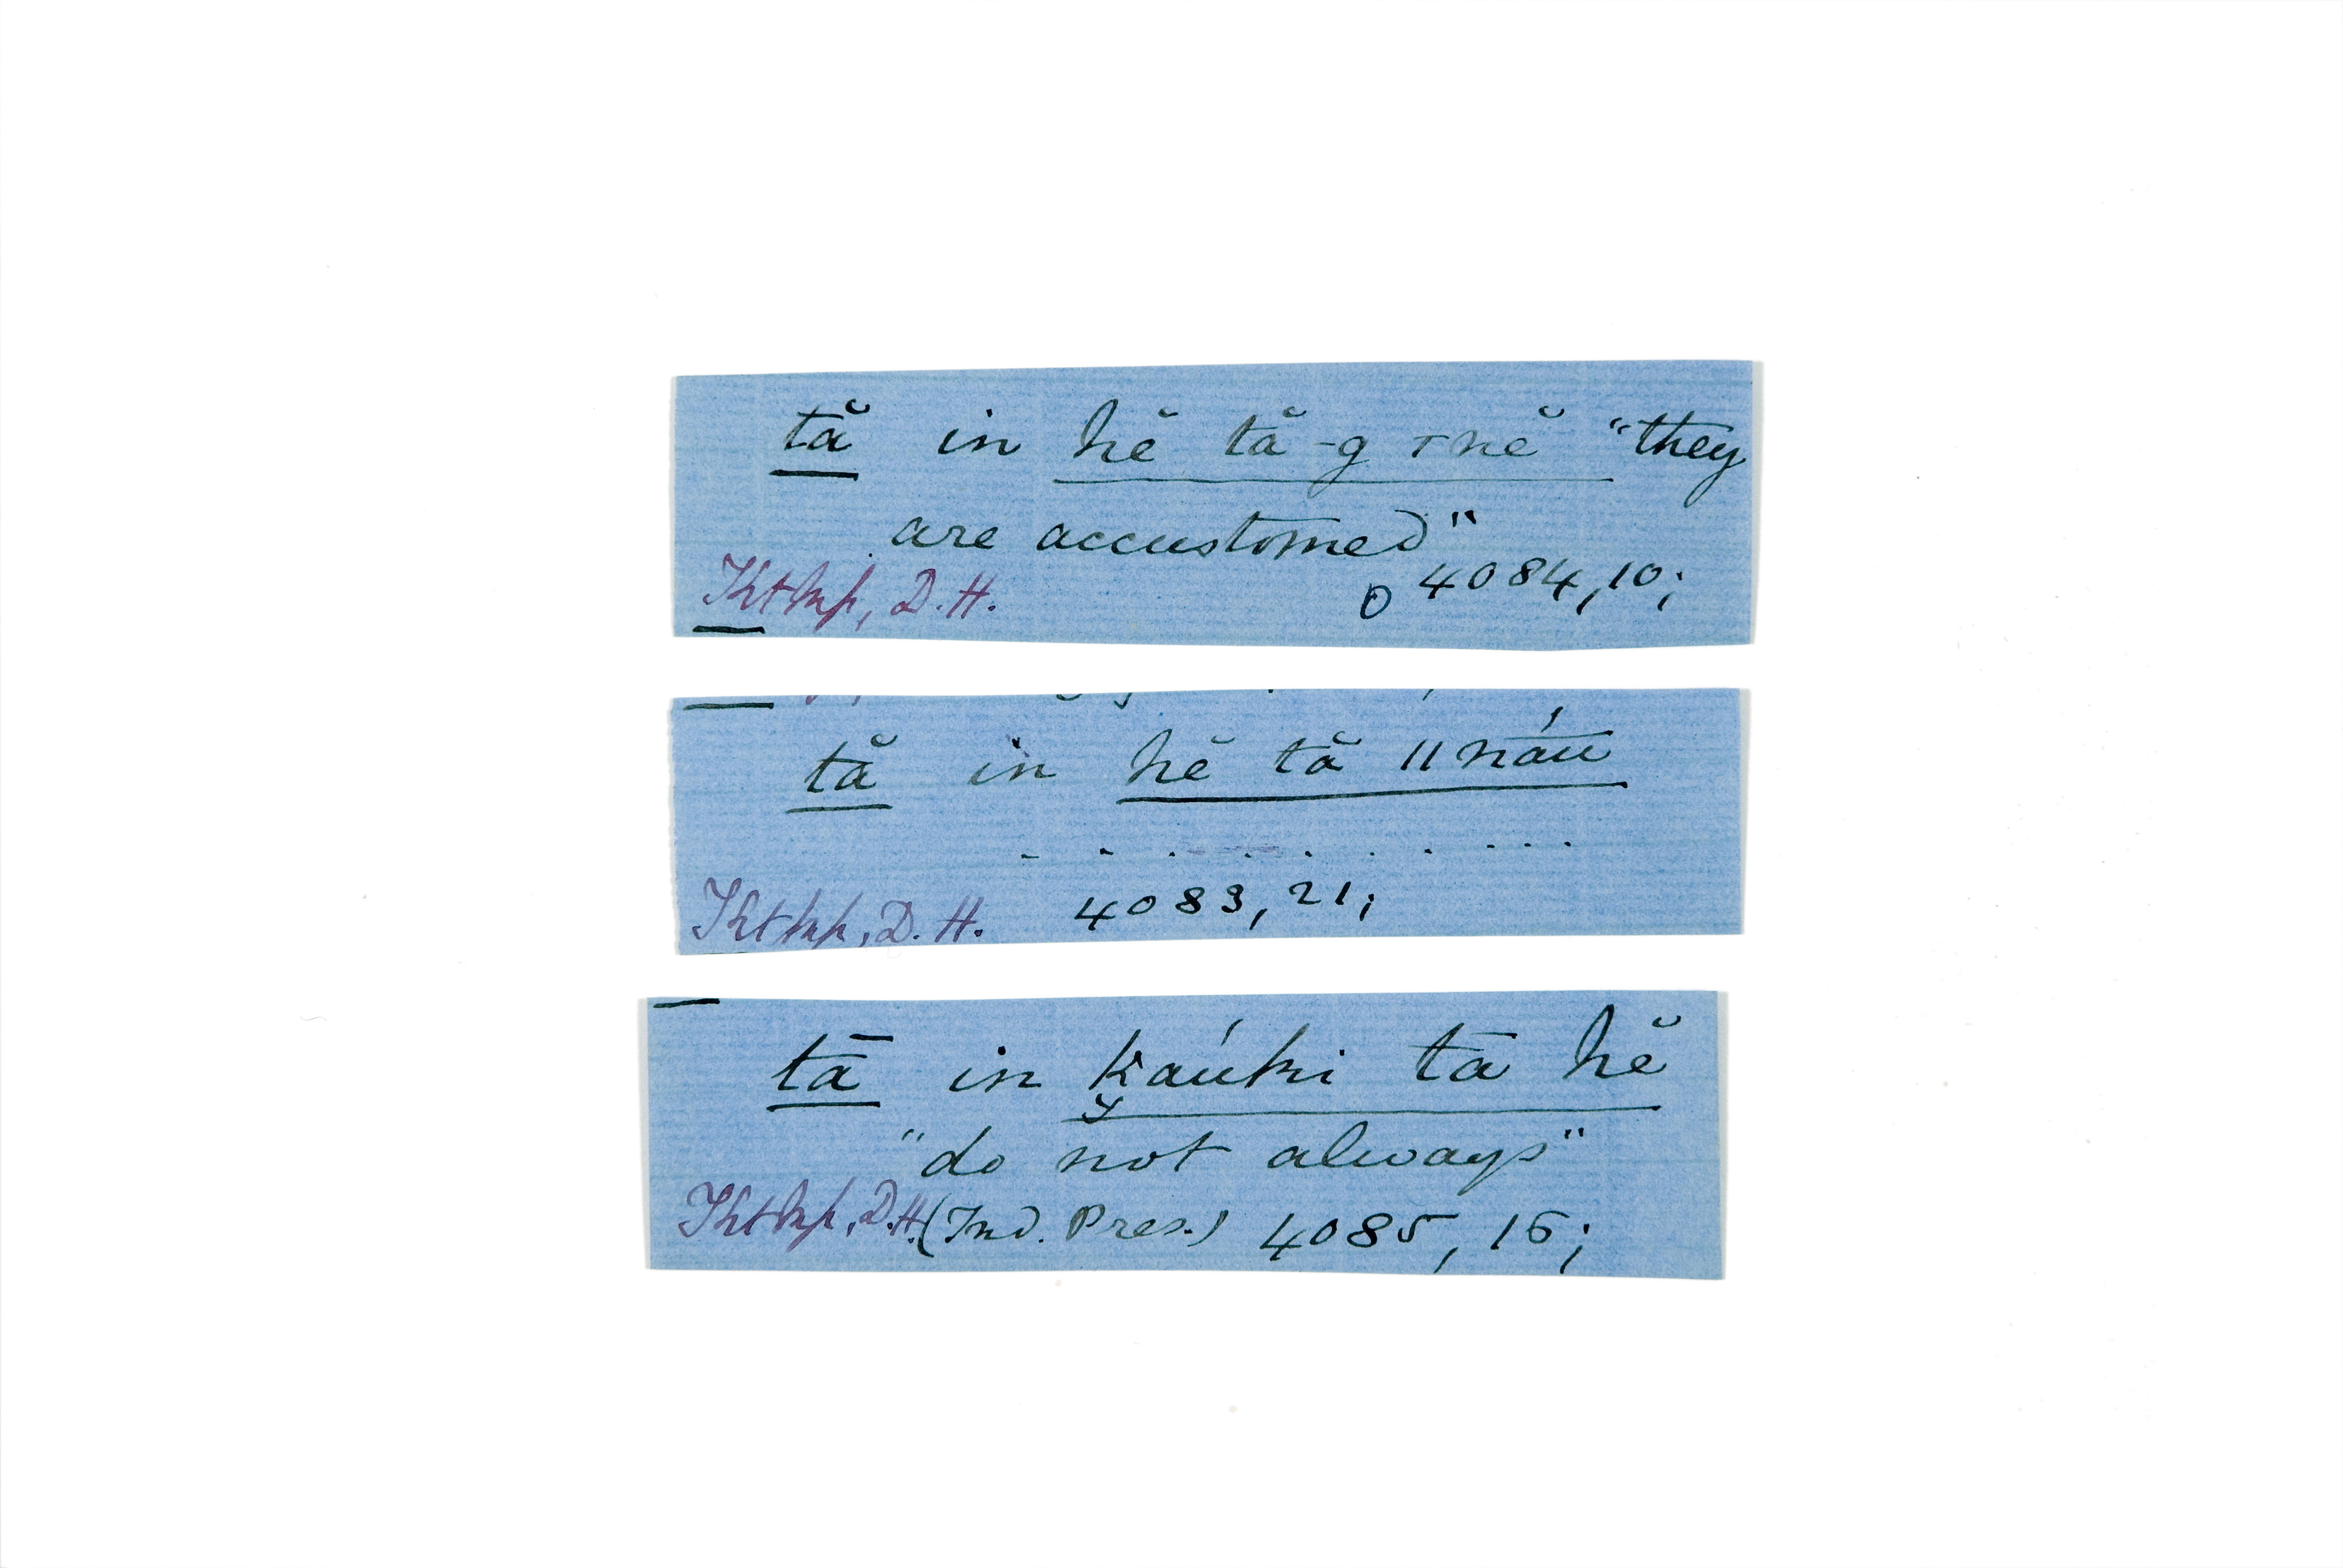 tă in hĕ tă-g ⊤nĕ "they
are accustomed"
Ktthp, D.H. 4084,10;
tă in hĕ tă ǁnā́ū
. . . . . . . . . . .
Ktthp, D.H. 4083, 21;
tā in k̯aúki tā hĕ
"do not always"
Ktthp, D.H. (Ind. Pres.) 4085, 15;